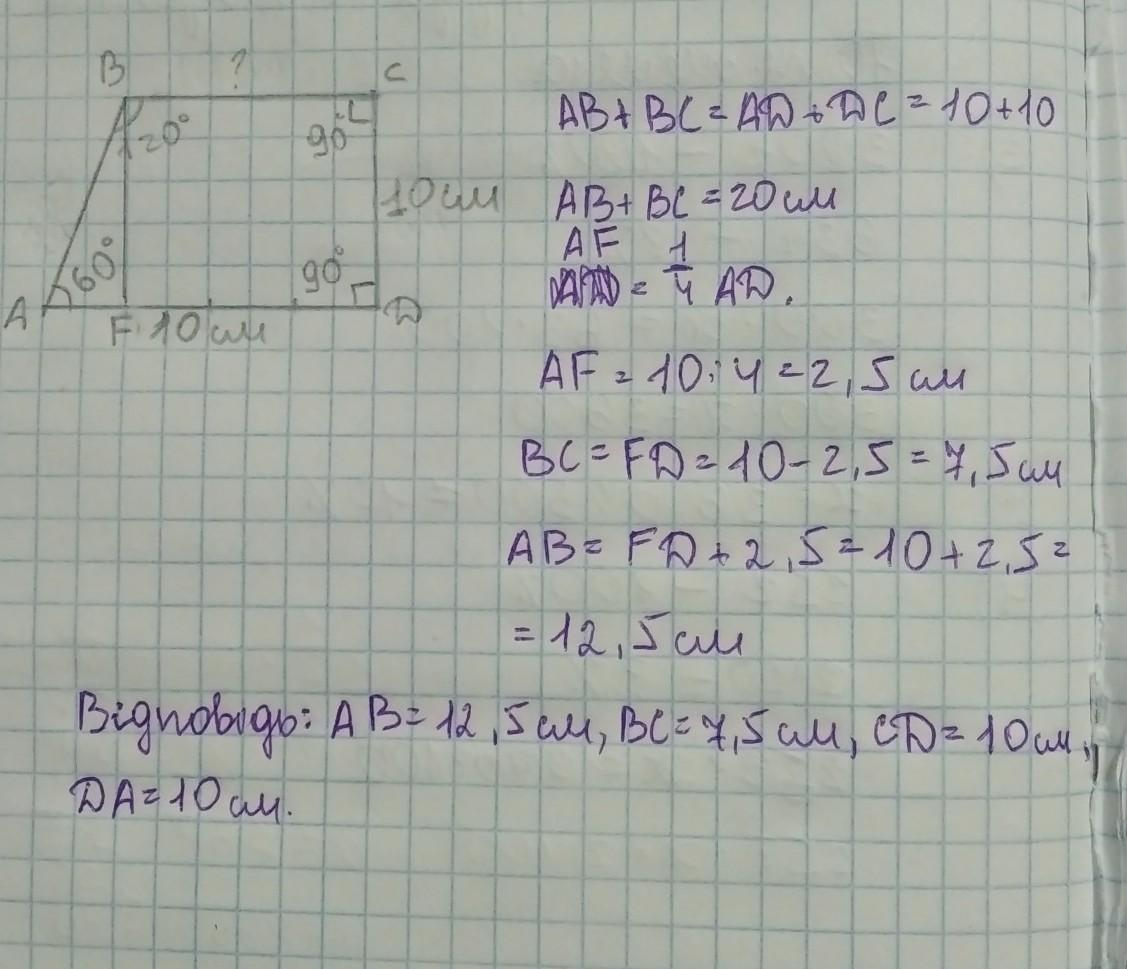 B ? C
20° 90°
10 см
60° 90°
A F 10 см D
AB + BC = AD + DC = 10 + 10
AB + BC = 20 см
AF = 1/4 AD.
AF = 10 : 4 = 2,5 см
BC = FD = 10 - 2,5 = 7,5 см
AB = FD + 2,5 = 10 + 2,5 =
= 12,5 см
Відповідь: AB = 12,5 см, BC = 7,5 см, CD = 10 см,
DA = 10 см.